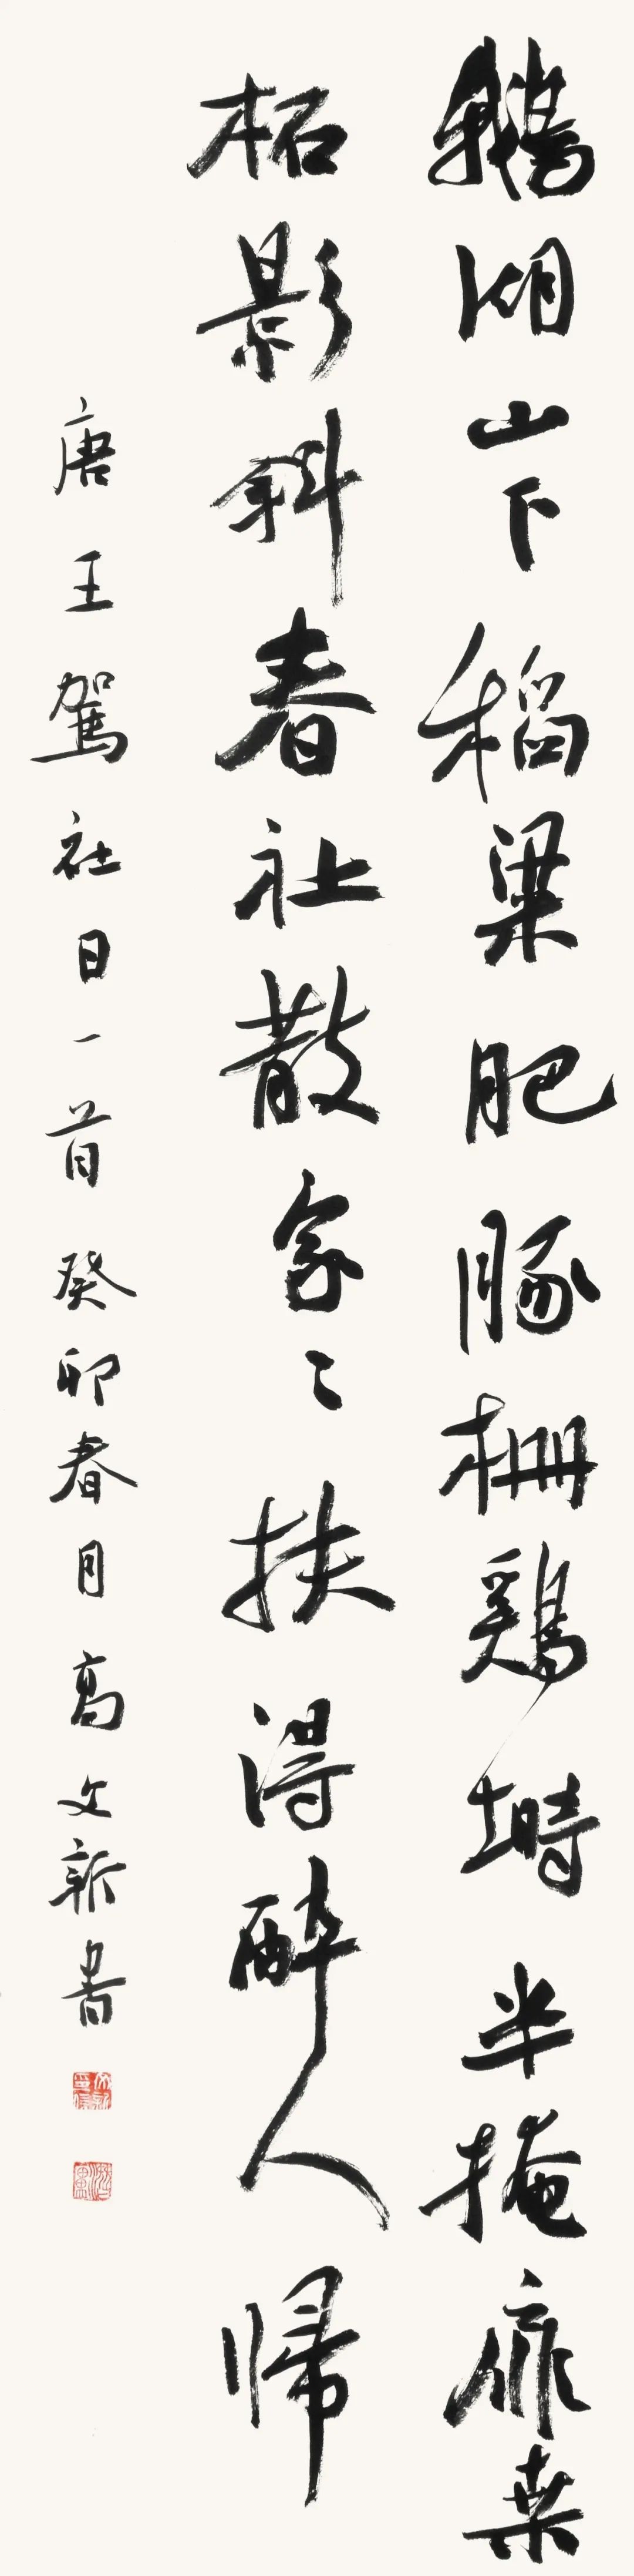 鵝湖山下稻粱肥豚栅鷄塒半掩扉桒
柘影斜春社散家〻扶得醉人歸
唐王駕社日一首癸卯春月高文新書